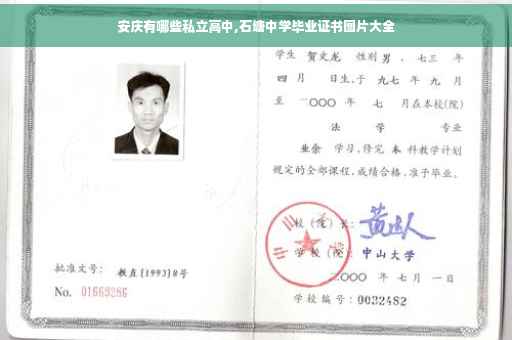 安庆有哪些私立高中,石塘中学毕业证书图片大全
学生 贺文龙 性别 男 、七三 年
四 月 日生,于 九七 年 九 月
至 二〇〇〇 年 七 月在本校(院)
法 学 专业
业余 学习,修完 本 科教学计划
规定的全部课程,成绩合格,准予毕业。
校(院)长:
学校(院) 中山大学
二〇〇〇 年 七 月 一 日
学校编号:0032482
批准文号: 教直[1993]8号
No. 01669286